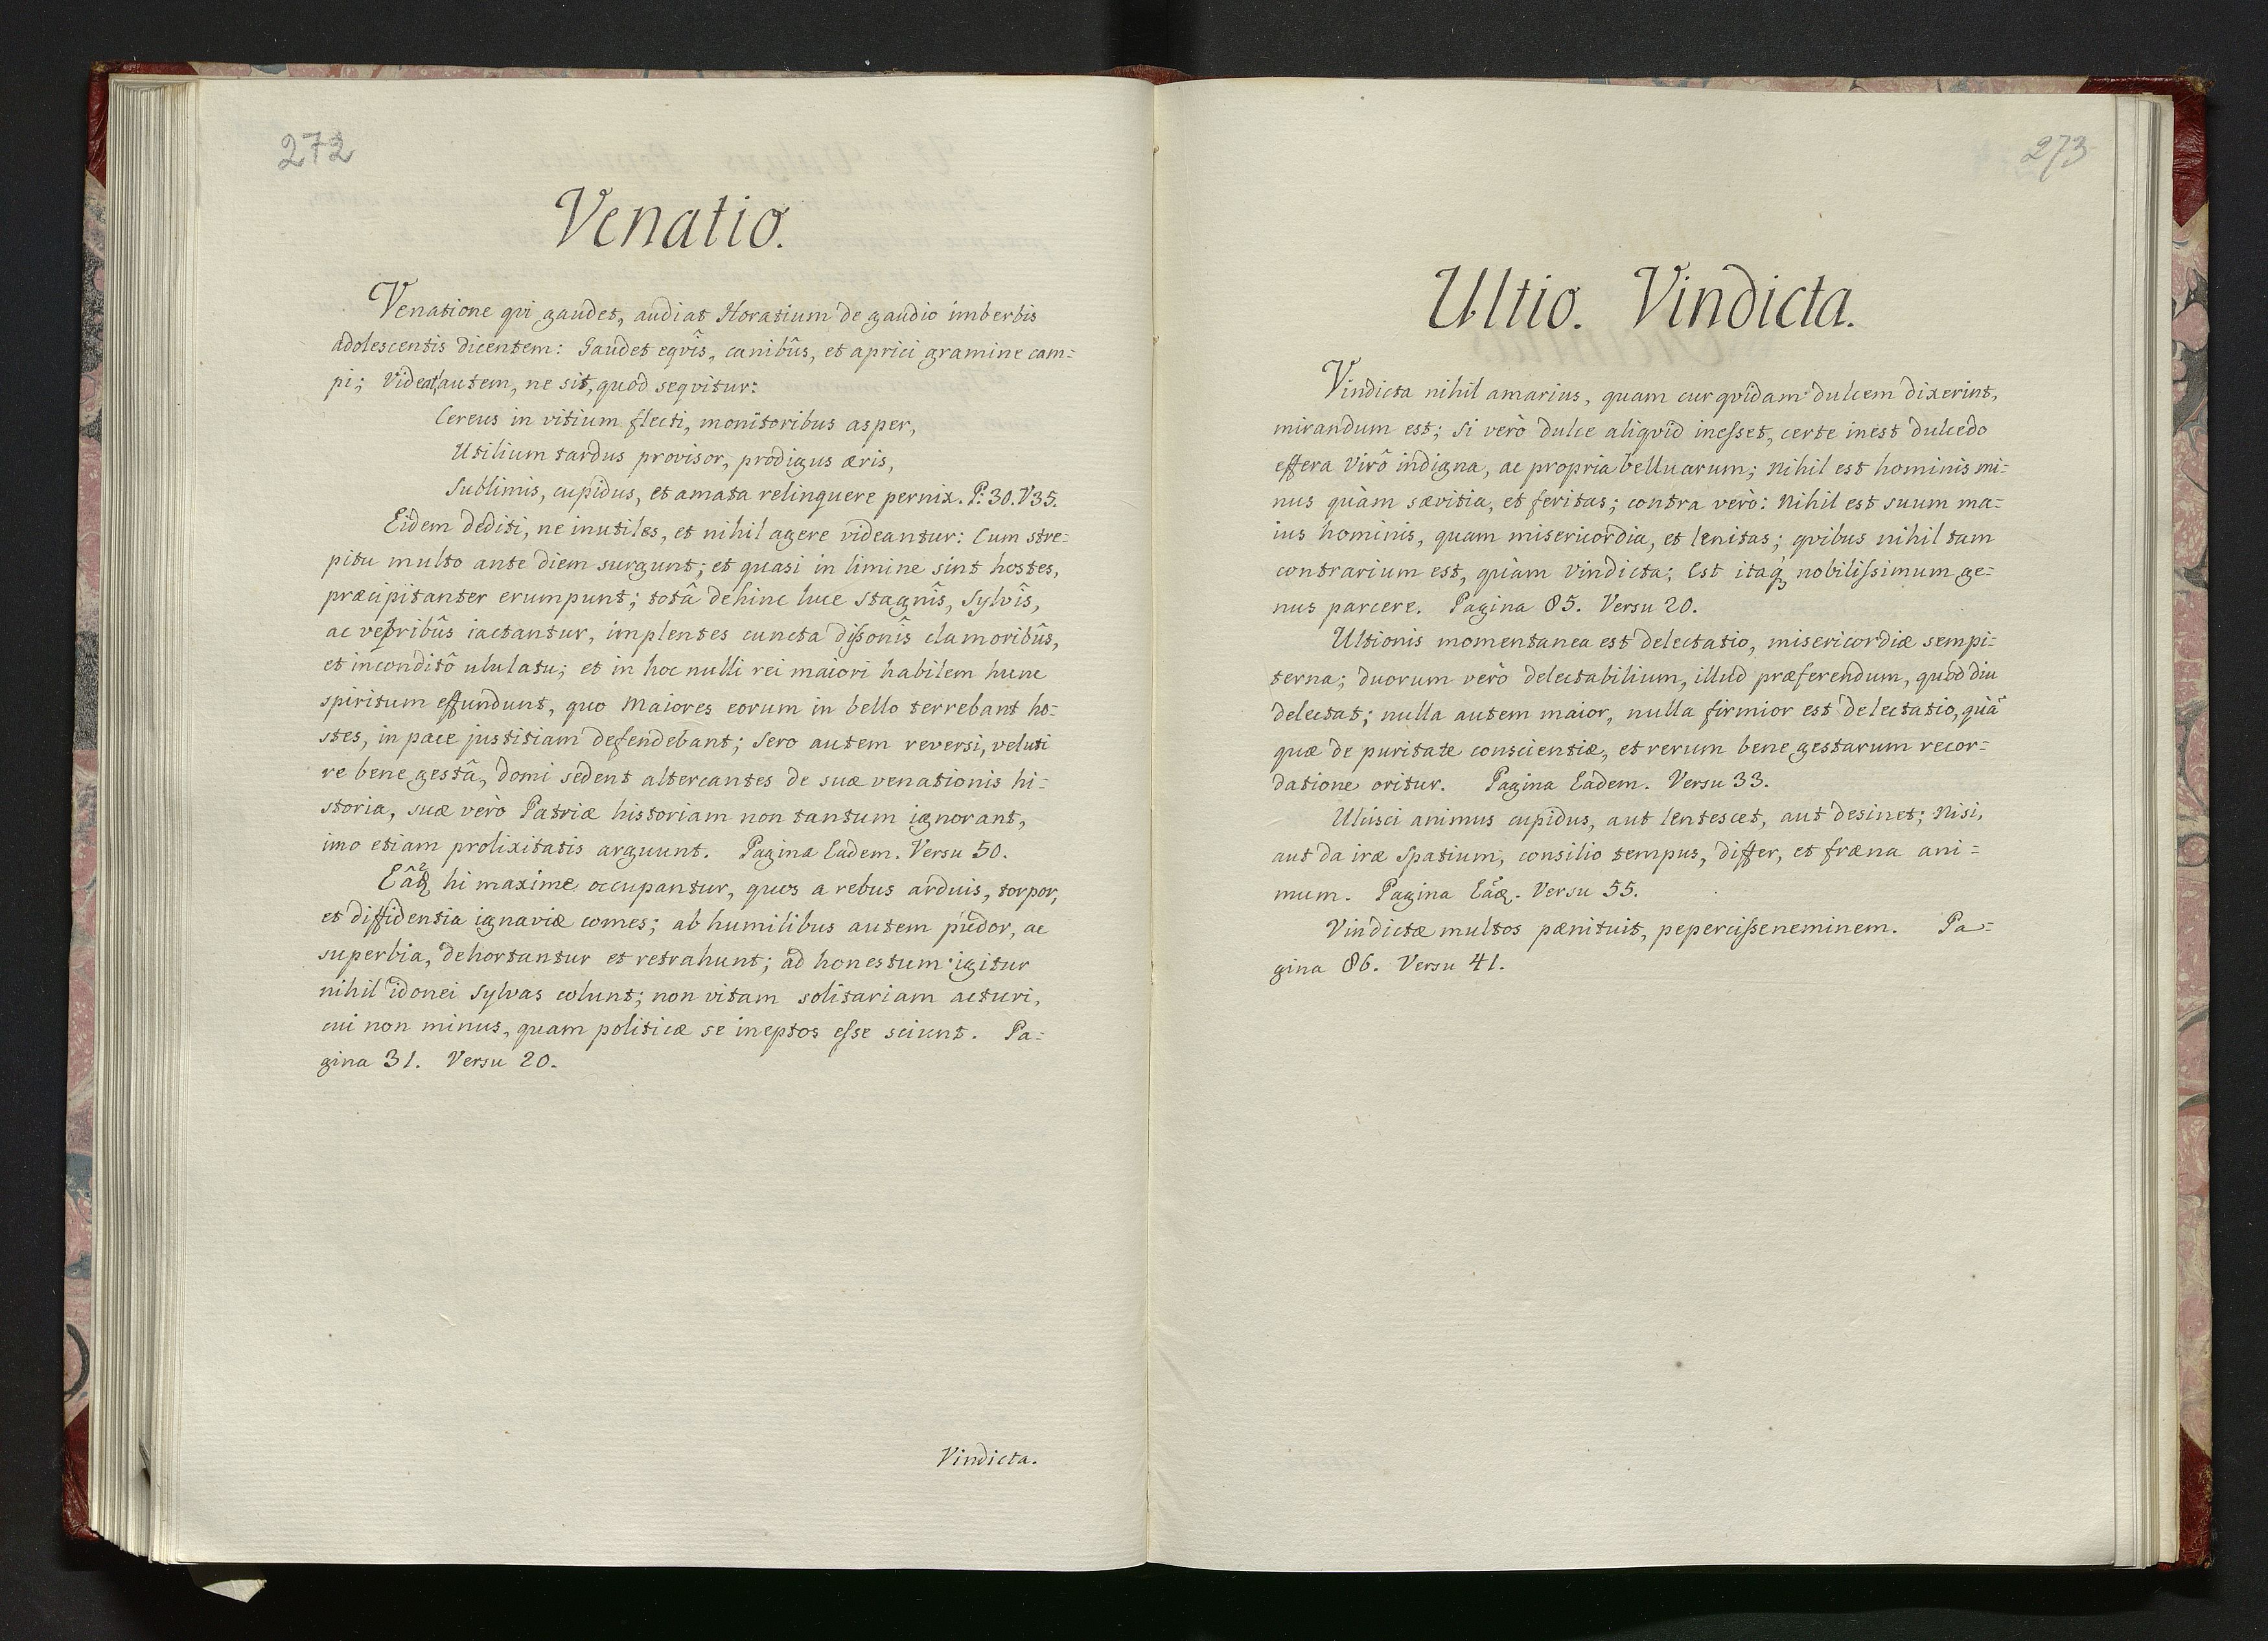 272
Venatio.
Venatione qvi gaudet, audiat Horatium de gaudio imberbis
adolescentis dicentem: Gaudet eqvîs, canibûs, et aprici gramine cam=
pi; Videat autem, ne sit, quod seqvitur:
Cereus in vitium flecti, monitoribus asper,
Utilium tardus provisor, prodigus æris,
Sublimis, cupidus, et amata relinquere pernix. P: 30. V 35.
Eidem dediti, ne inutiles, et nihil agere videantur: Cum stre=
pitu multo ante diem surgunt; et quasi in limine sint hostes,
præcipitanter erumpunt; totâ dehinc luce stagnîs, Sylvîs,
ac vepribûs iactantur, implentes cuncta dissonîs clamoribûs,
et inconditô ululatu; et in hoc nulli rei maiori habilem hunc
spiritum effundunt, quo Maiores eorum in bello terrebant ho=
stes, in pace justitiam defendebant; Sero autem reversi, veluti
re bene gestâ, domi sedent altercantes de suæ venationis hi=
storia, suæ verò Patriæ historiam non tantum ignorant,
imo etiam prolixitatis arguunt. Pagina Eadem. Versu 50.
hi maxime occupantur, quos a rebus arduis, torpor,
et diffidentia ignaviæ comes; ab humilibus autem pudor, ac
superbia, dehortantur et retrahunt; ad honestum igitur
nihil idonei Sylvas colunt; non vitam solitariam acturi,
cui non minus, quam politicæ se ineptos esse sciunt. Pa=
gina 31. Versu 20.
Vindicta.
273
Ultio. Vindicta.
Vindicta nihil amarius, quam cur qvidam dulcem dixerint,
mirandum est; Si verò dulce aliqvid inesset, certe inest dulcedo
effera Virô indigna, ac propria belluarum; Nihil est hominis mi=
nus quàm sævitia, et feritas; contra verò: Nihil est suum ma=
ius hominis, quam misericordia, et lenitas; qvibus nihil tam
contrarium est, quàm Vindicta; Est itaq; nobilissimum ge=
nus parcere. Pagina 85. Versu 20.
Ultionis momentanea est delectatio, misericordiæ sempi=
terna; duorum verò delectabilium, illud præferendum, quod diu
delectat; nulla autem maior, nulla firmior est delectatio, quã
quæ de puritate conscientiæ, et rerum bene gestarum recor=
datione oritur. Pagina Eadem. Versu 33.
Ulcisci animus cupidus, aut lentescet, aut desinet; Nisi,
aut da iræ Spatium, consilio tempus, differ, et fræna ani=
mum. Pagina Versu 55.
Vindictæ multos pænituit, pepercisse neminem. Pa=
gina 86. Versu 41.